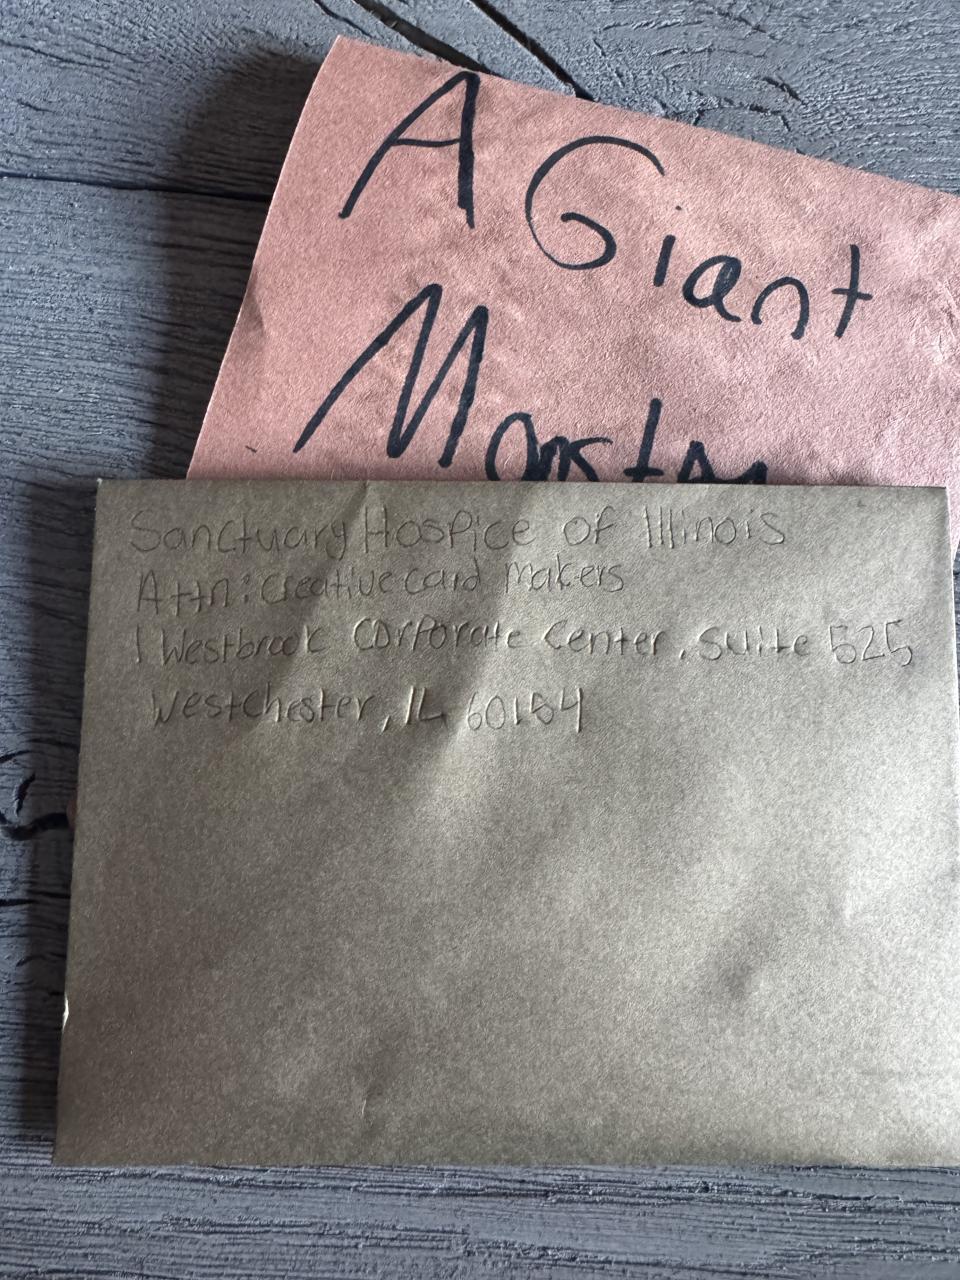 A Giant
Sanctuary Hospice of Illinois
Attn: Creative card Makers
1 Westbrook Corporate Center, Suite 525
Westchester, IL 60154